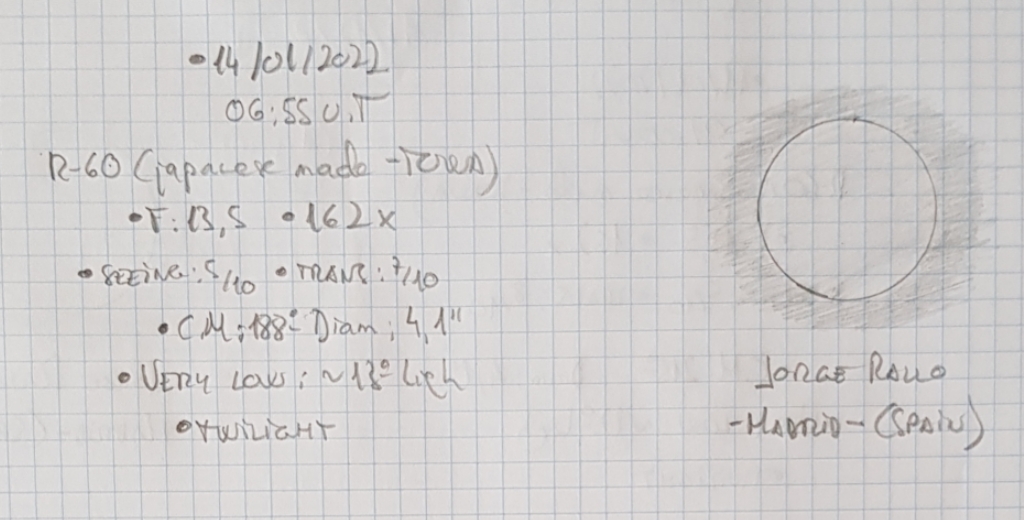 •14/01/2022
06:55 U.T
R-60 (japanese made -Towa)
•F:13,5 •162x
•SEEING:5/10 •TRANS:7/10
•C.M:188° Diam: 4,1"
•VERY LOW: ~13° high
•TWILIGHT
JORGE RALLO
-MADRID- (SPAIN)